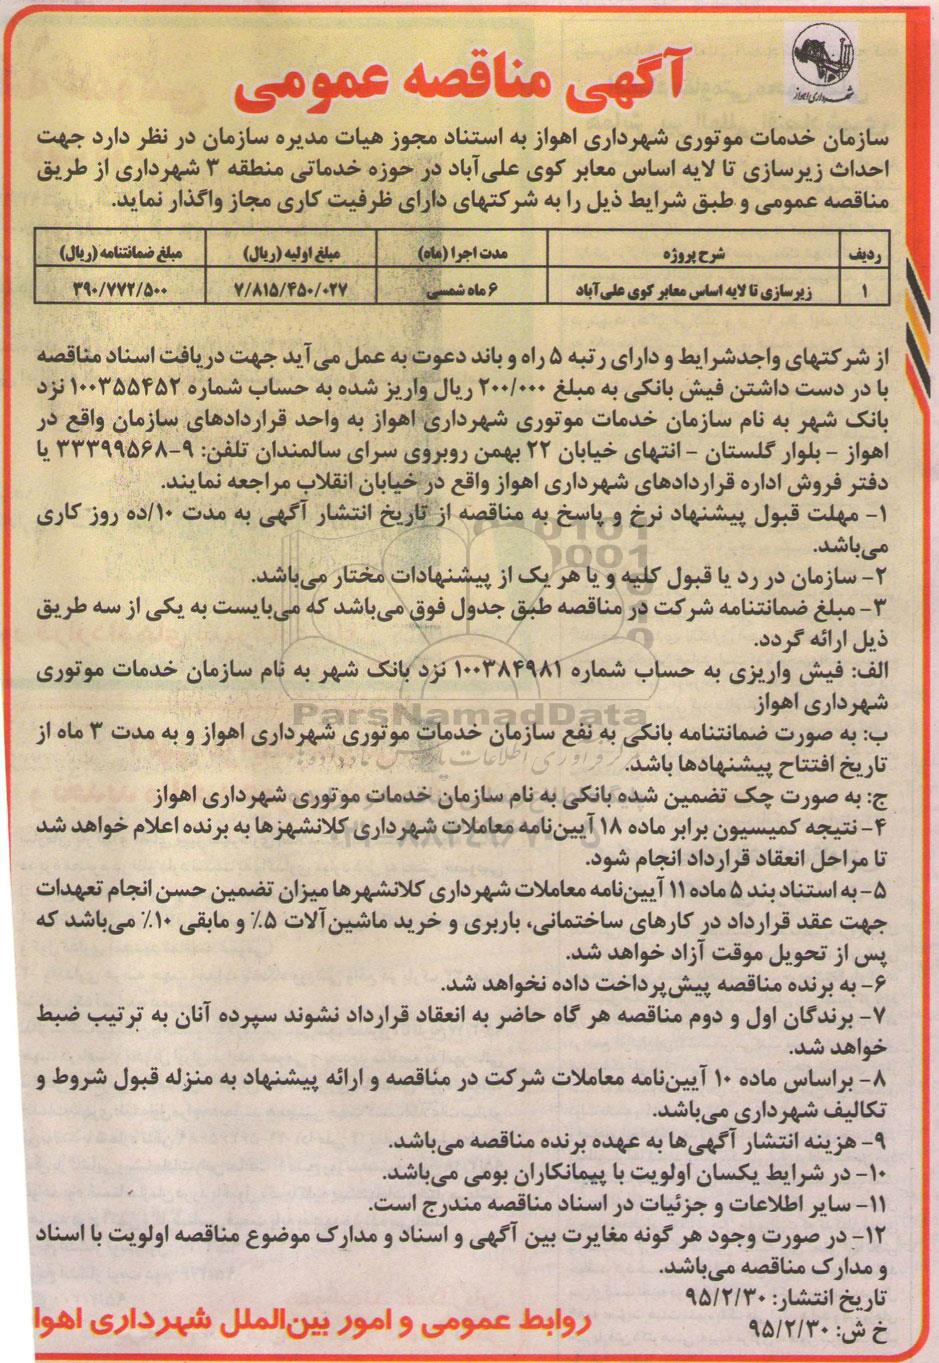 شهرداری اهواز
آگهی مناقصه عمومی
سازمان خدمات موتوری شهرداری اهواز به استناد مجوز هیات مدیره سازمان در نظر دارد جهت
احداث زیرسازی تا لایه اساس معابر کوی علی‌آباد در حوزه خدماتی منطقه ۳ شهرداری از طریق
مناقصه عمومی و طبق شرایط ذیل را به شرکتهای دارای ظرفیت کاری مجاز واگذار نماید.
ردیف شرح پروژه مدت اجرا (ماه) مبلغ اولیه (ریال) مبلغ ضمانتنامه (ریال)
۱ زیرسازی تا لایه اساس معابر کوی علی‌آباد ۶ ماه شمسی ۷/۸۱۵/۴۵۰/۰۲۷ ۳۹۰/۷۷۲/۵۰۰
از شرکتهای واجدشرایط و دارای رتبه ۵ راه و باند دعوت به عمل می‌آید جهت دریافت اسناد مناقصه
با در دست داشتن فیش بانکی به مبلغ ۲۰۰/۰۰۰ ریال واریز شده به حساب شماره ۱۰۰۳۵۵۴۵۲ نزد
بانک شهر به نام سازمان خدمات موتوری شهرداری اهواز به واحد قراردادهای سازمان واقع در
اهواز - بلوار گلستان - انتهای خیابان ۲۲ بهمن روبروی سرای سالمندان تلفن: ۹-۳۳۳۹۹۵۶۸ یا
دفتر فروش اداره قراردادهای شهرداری اهواز واقع در خیابان انقلاب مراجعه نمایند.
۱- مهلت قبول پیشنهاد نرخ و پاسخ به مناقصه از تاریخ انتشار آگهی به مدت ۱۰/ده روز کاری
می‌باشد.
۲- سازمان در رد یا قبول کلیه و یا هر یک از پیشنهادات مختار می‌باشد.
۳- مبلغ ضمانتنامه شرکت در مناقصه طبق جدول فوق می‌باشد که می‌بایست به یکی از سه طریق
ذیل ارائه گردد.
الف: فیش واریزی به حساب شماره ۱۰۰۳۸۴۹۸۱ نزد بانک شهر به نام سازمان خدمات موتوری
شهرداری اهواز
ParsNamadData
ب: به صورت ضمانتنامه بانکی به نفع سازمان خدمات موتوری شهرداری اهواز و به مدت ۳ ماه از
تاریخ افتتاح پیشنهادها باشد.
ج: به صورت چک تضمین شده بانکی به نام سازمان خدمات موتوری شهرداری اهواز
۴- نتیجه کمیسیون برابر ماده ۱۸ آیین‌نامه معاملات شهرداری کلانشهزها به برنده اعلام خواهد شد
تا مراحل انعقاد قرارداد انجام شود.
۵- به استناد بند ۵ ماده ۱۱ آیین‌نامه معاملات شهرداری کلانشهرها میزان تضمین حسن انجام تعهدات
جهت عقد قرارداد در کارهای ساختمانی، باربری و خرید ماشین‌آلات ۵٪ و مابقی ۱۰٪ می‌باشد که
پس از تحویل موقت آزاد خواهد شد.
۶- به برنده مناقصه پیش‌پرداخت داده نخواهد شد.
۷- برندگان اول و دوم مناقصه هر گاه حاضر به انعقاد قرارداد نشوند سپرده آنان به ترتیب ضبط
خواهد شد.
۸- براساس ماده ۱۰ آیین‌نامه معاملات شرکت در مناقصه و ارائه پیشنهاد به منزله قبول شروط و
تکالیف شهرداری می‌باشد.
۹- هزینه انتشار آگهی‌ها به عهده برنده مناقصه می‌باشد.
۱۰- در شرایط یکسان اولویت با پیمانکاران بومی می‌باشد.
۱۱- سایر اطلاعات و جزئیات در اسناد مناقصه مندرج است.
۱۲- در صورت وجود هر گونه مغایرت بین آگهی و اسناد و مدارک موضوع مناقصه اولویت با اسناد
و مدارک مناقصه می‌باشد.
تاریخ انتشار: ۹۵/۲/۳۰
خ ش: ۹۵/۲/۳۰
روابط عمومی و امور بین‌الملل شهرداری اهوا